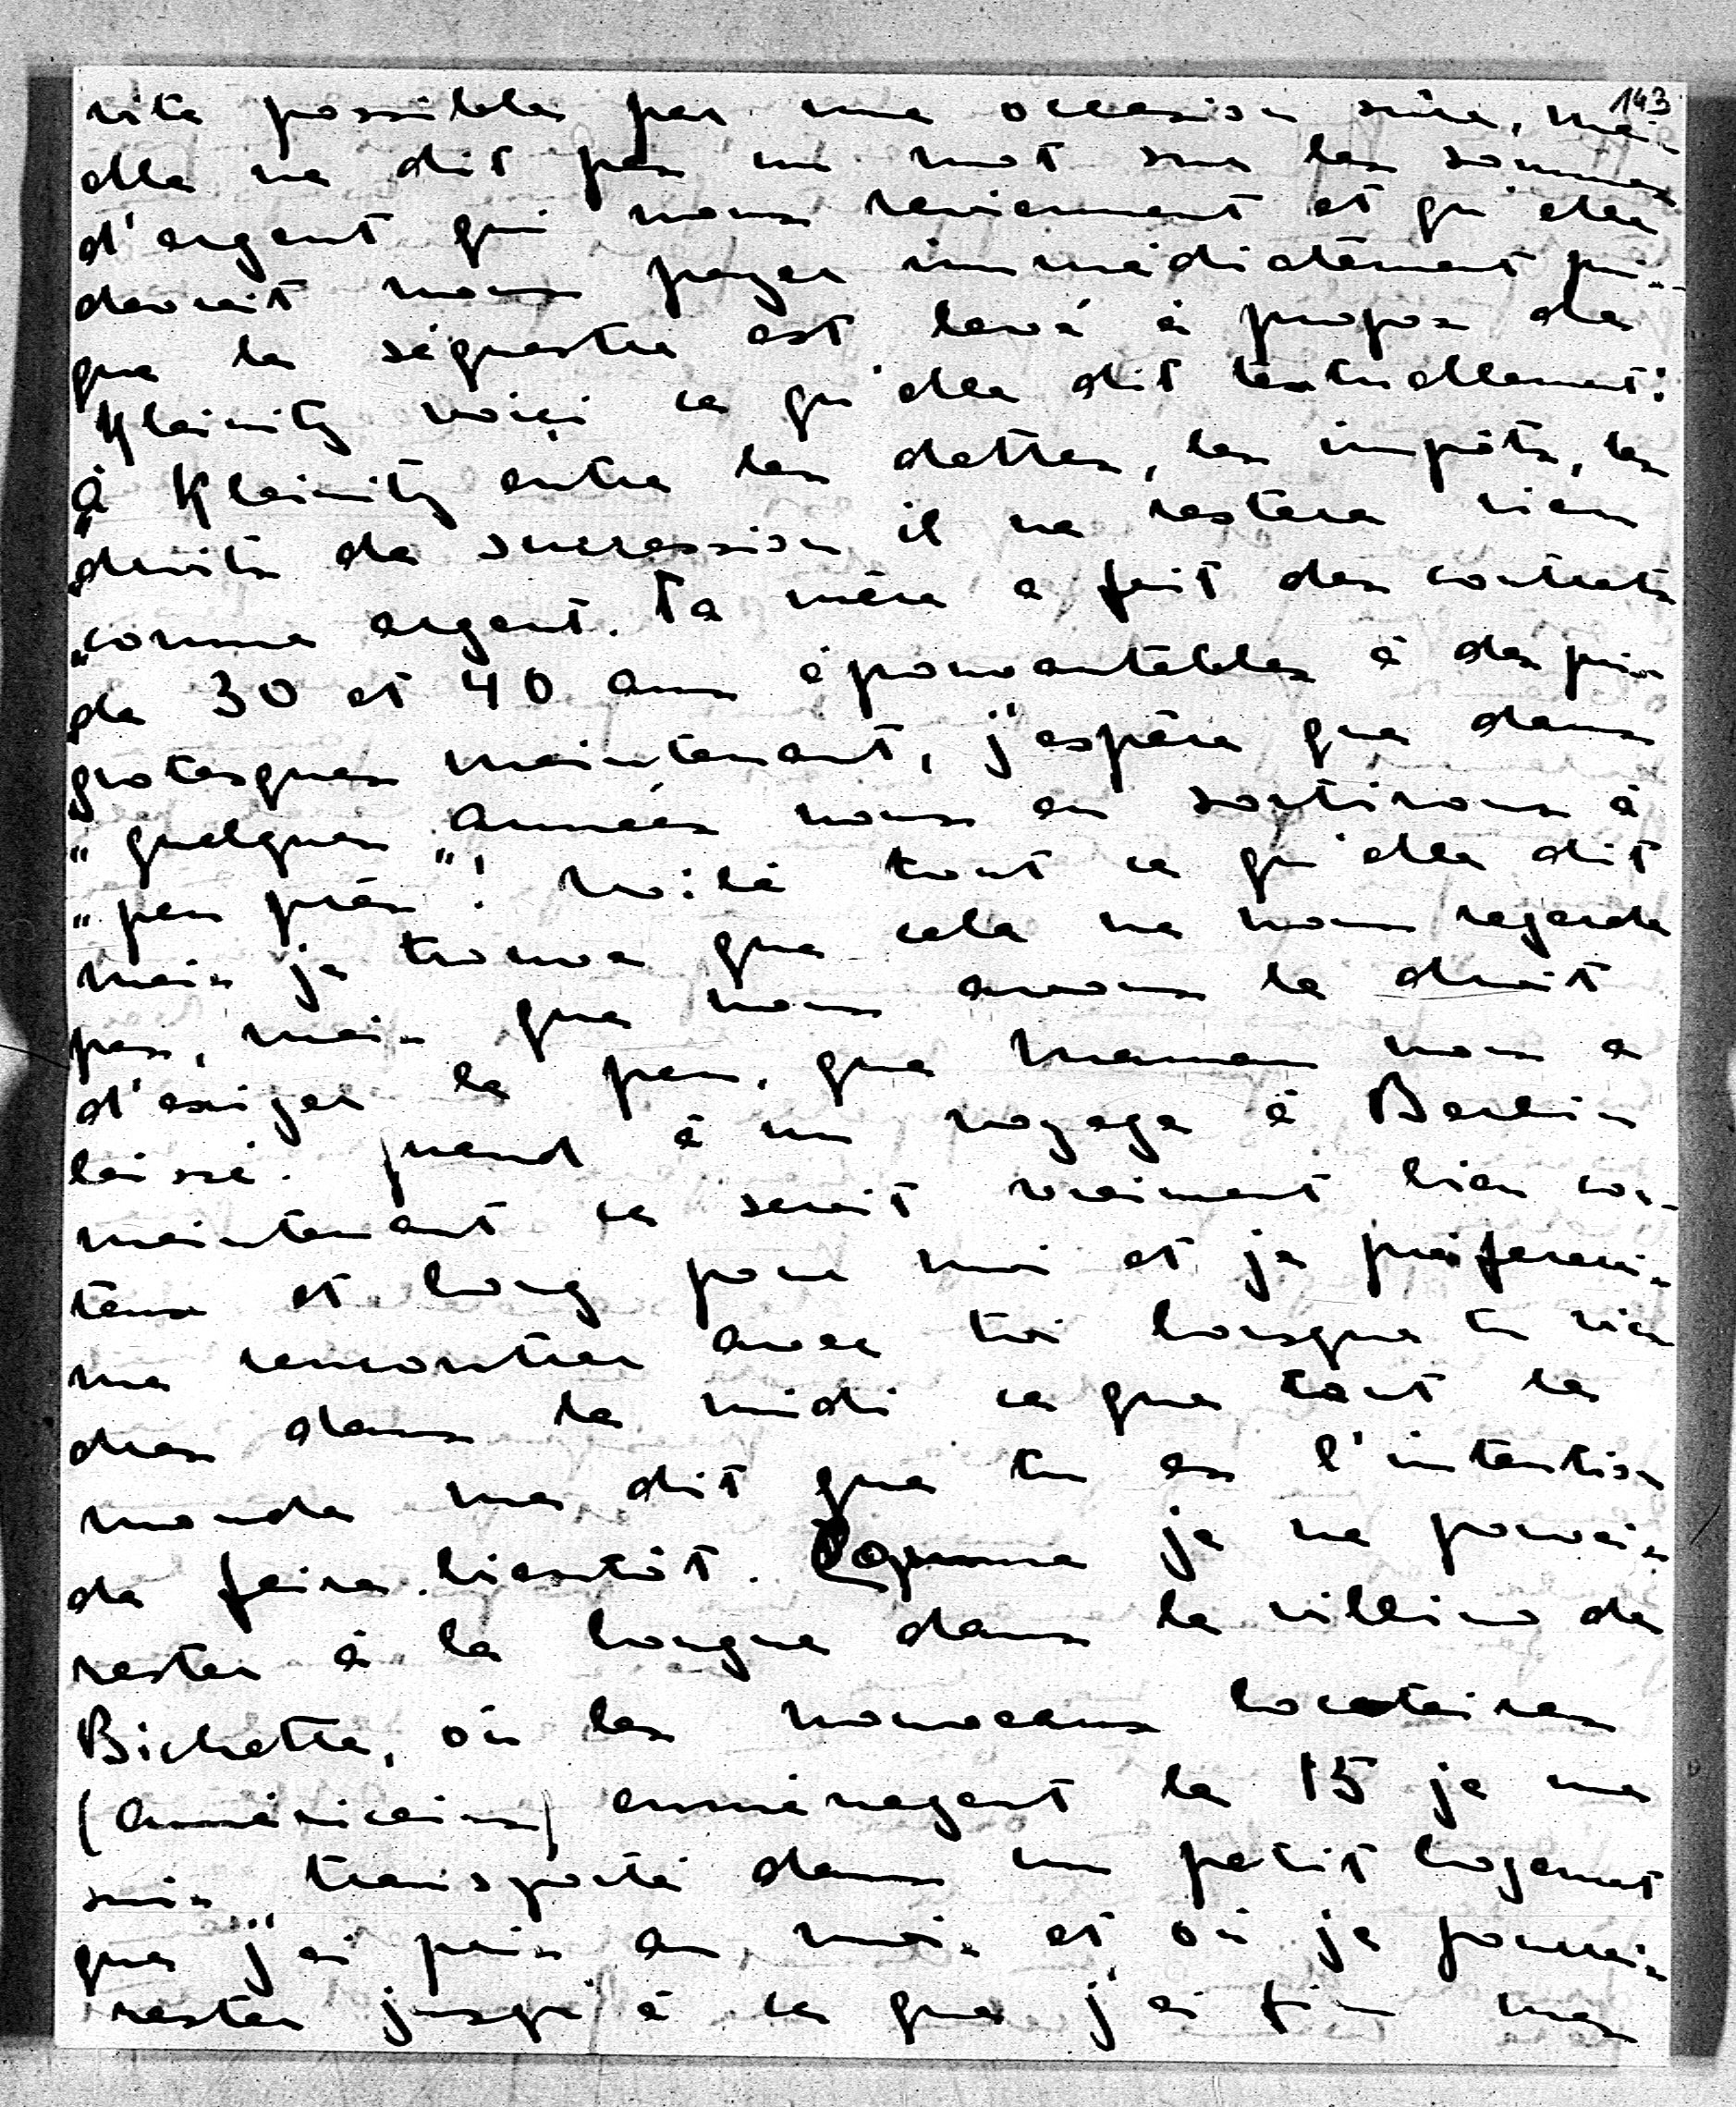 143
vite possible par une occasion sûre, mais
elle ne dit pas un mot sur les sommes
d'argent qui nous reviennent et qu'elle
devrait nous payer immédiatement puis-
que le séquestre est levé à propos de
Kleinitz voici ce qu'elle dit textuellement:
"à Kleinitz entre les dettes, les impôts, les
"droits de succession il ne restera rien
"comme argent. Ta mère a fait des contrats
"de 30 et 40 ans épouvantables à des prix
"grotesques maintenant, j'espère que dans
"quelques années nous en sortirons à
"peu près"! Voilà tout ce qu'elle dit
mais je trouve que cela ne nous regarde
pas, mais que nous avons le droit
d'exiger le peu, que Maman nous a
laissé. Quand à un voyage à Berlin
maintenant ce serait vraiment bien coû-
teux et long pour moi et je préfererais
me rencontrer avec toi lorsque tu vien
dras dans le midi ce que tout le
monde me dit que tu as l'intention
de faire bientôt. Comme je ne pouvais
rester à la longue dans le villino de
Bichette, où les nouveaux locataires
(américains) emménagent le 15 je me
suis transporté dans un petit logement
que j'ai pris au mois et où je pourrai
rester jusqu'à ce que j'ai fini mes